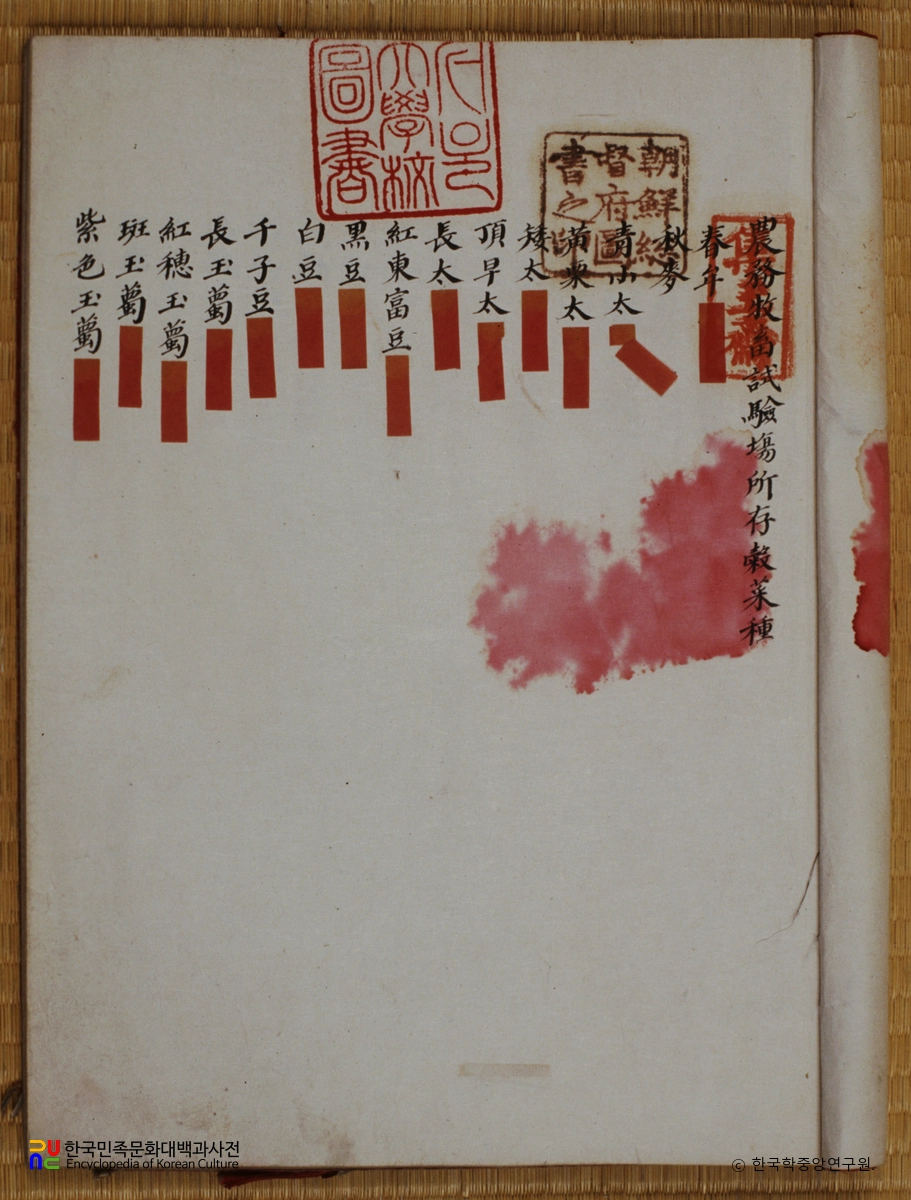 農務牧畜試驗場所存穀菜種
春牟
秋麥
靑山太
黃栗太
矮太
頂早太
長太
紅東富豆
黑豆
白豆
千子豆
長玉薥
紅穗玉薥
斑玉薥
紫色玉薥
朝鮮總
督府圖
書之印
大學校
圖書
한국민족문화대백과사전
Encyclopedia of Korean Culture
© 한국학중앙연구원